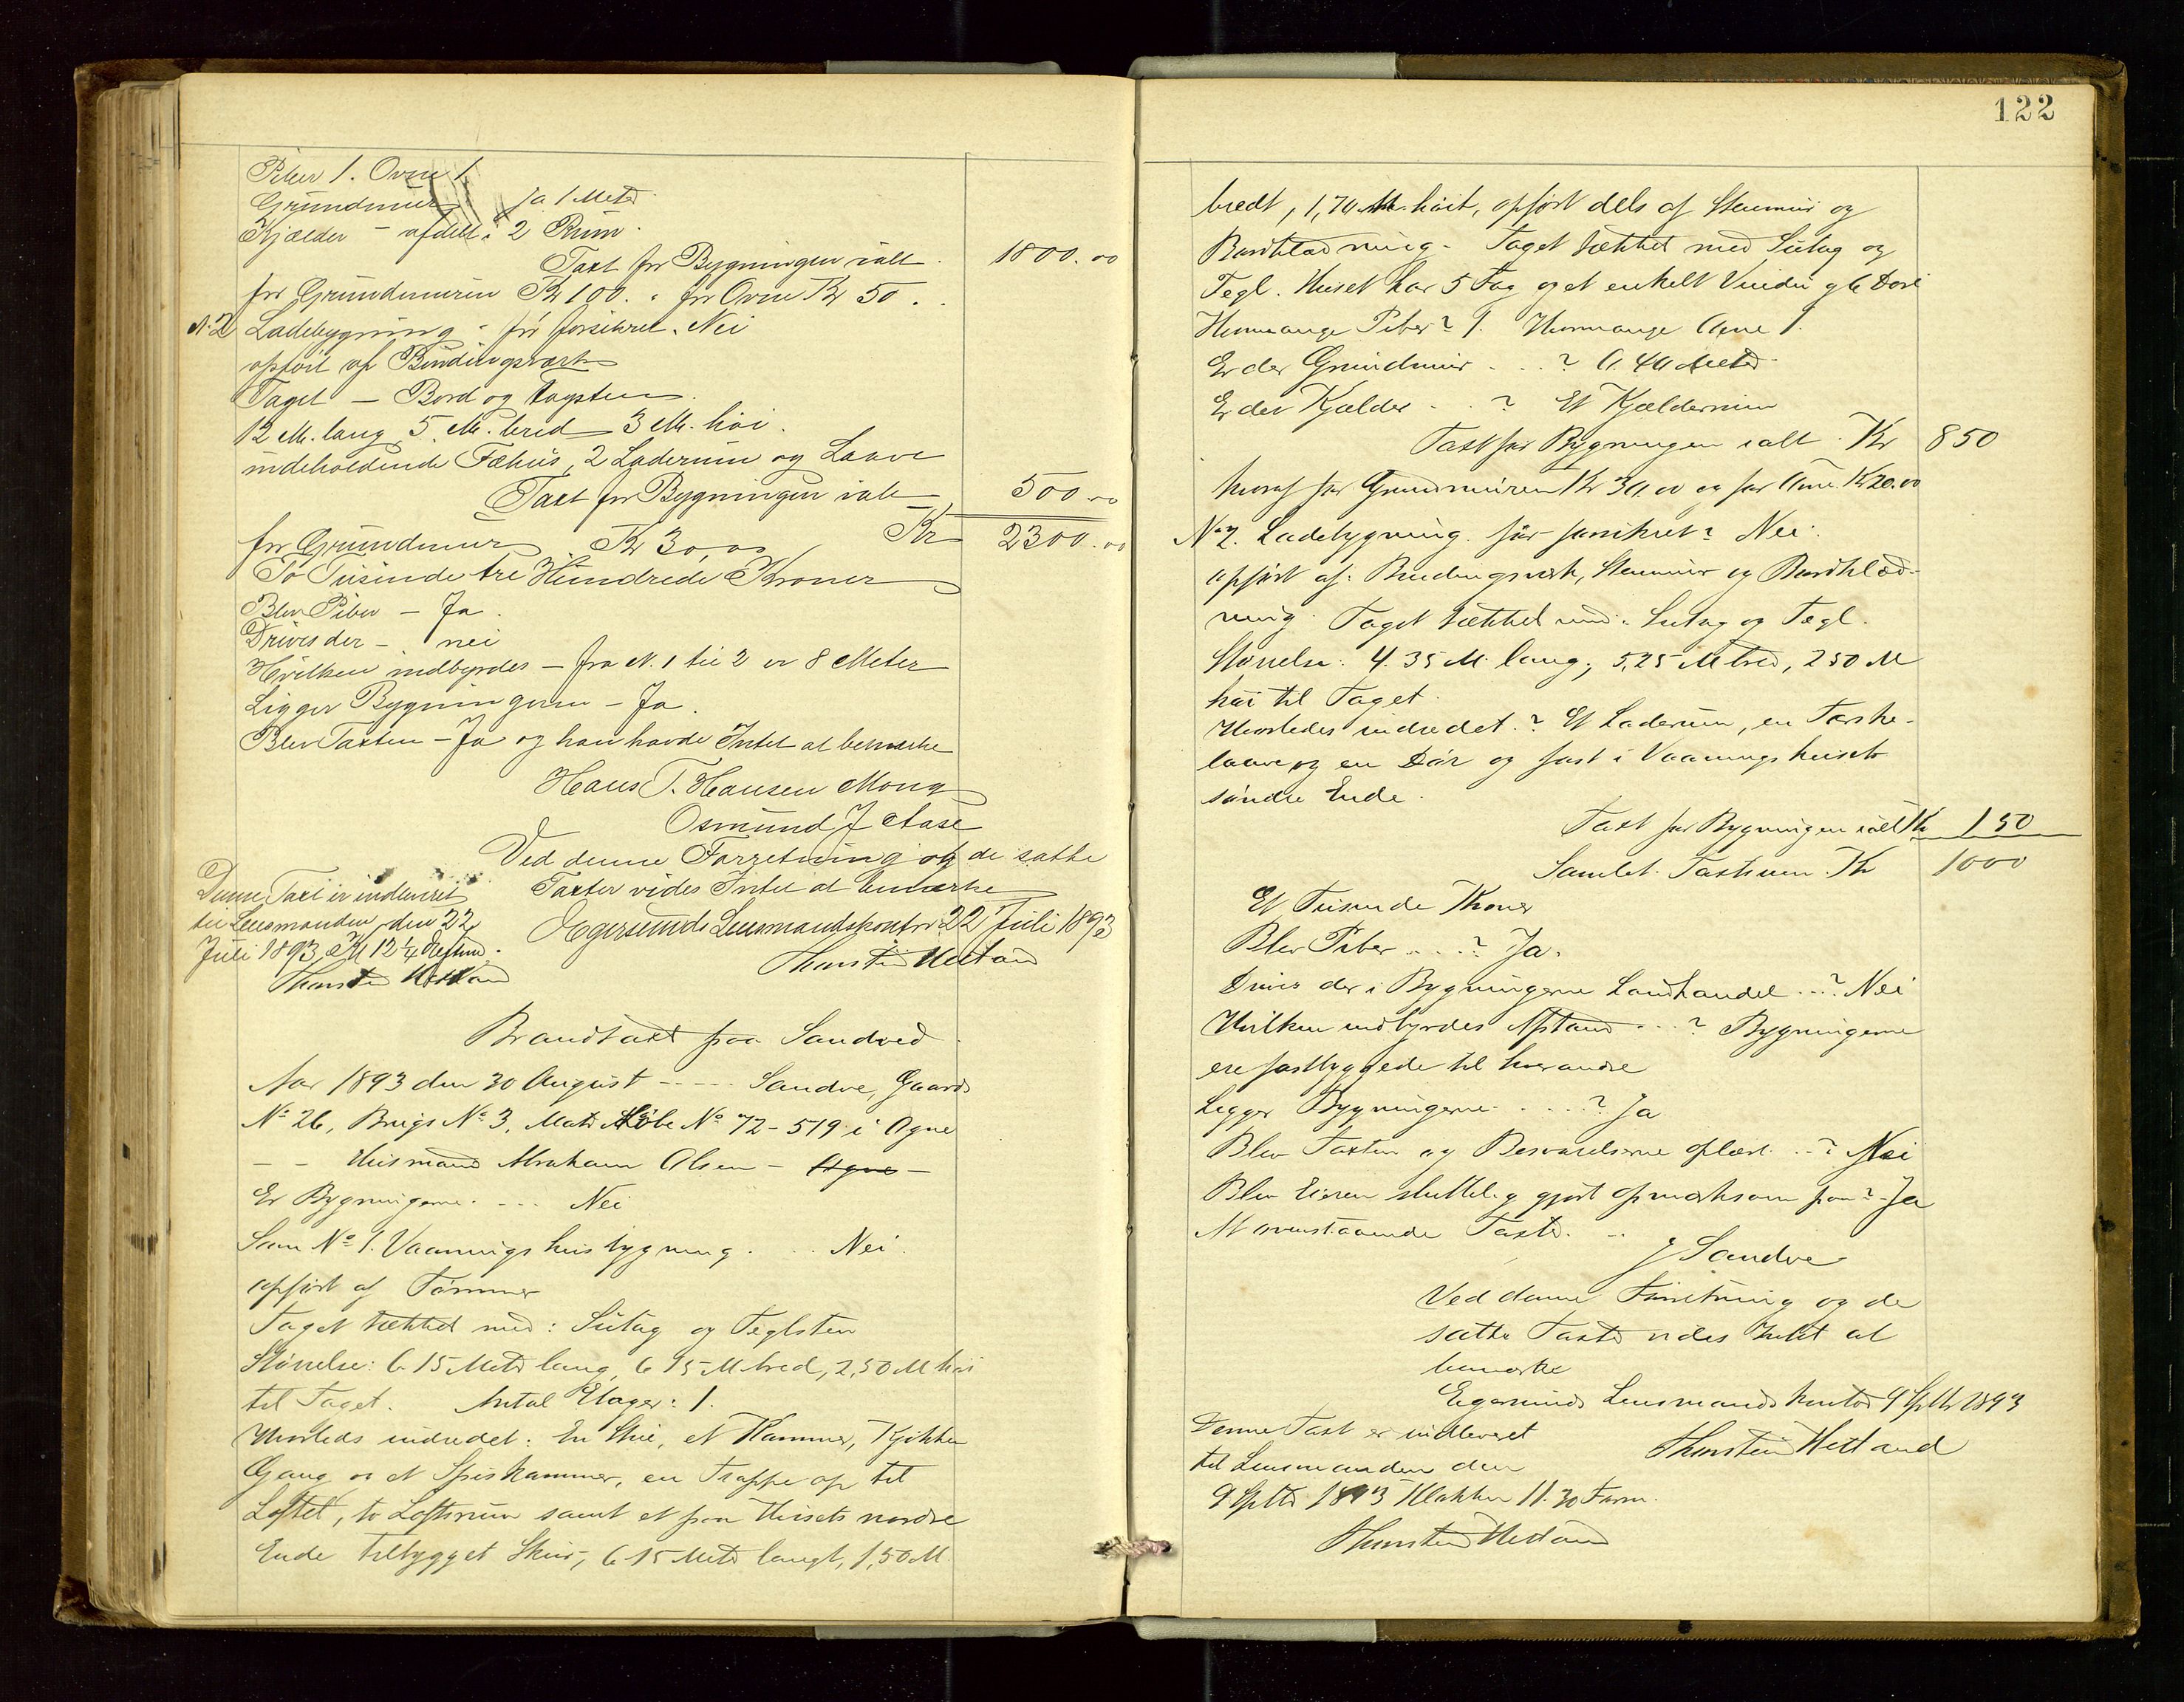 Piber 1. Ovne 1.
Grundmur Ja 1 Meter
Kjælder – afdelt i 2 Rum.
Taxt for Bygningen ialt 1800.00
for Grundmuren Kr 100. " for Ovne Kr 50.
N. 2 Ladebygning - før forsikret. Nei
opført af Bindingsværk
Taget – Bord og Tagsten.
12 M. lang 5 M. bred 3 M. høi.
indeholdende Fæhus, 2 Laderum og Laave
Taxt for Bygningen ialt 500.00
for Grundmur Kr 30,00 Kr 2300.00
To Tusinde tre Hundrede Kroner
Blev Piber – Ja.
Drives der – nei
Hvilken indbyrdes – fra N. 1 til 2 er 8 Meter
Ligger Bygningerne – Ja.
Blev Taxten – Ja og han havde Intet at bemærke
Hans T. Hansen Mong
Osmund J Aase
Ved denne Forretning og de satte
Taxter vides Intet at bemærke
Egersunds Lensmandskontor 22 Juli 1893
Thorstein Hetland
Denne Taxt er indleveret
til Lensmanden den 22
Juli 1893 Kl 12 1/4 Efterm.
Thorstein Hetland
Brandtaxt paa Sandved
Aar 1893 den 30 August ----- Sandve, Gaards
No 26, Brugs No 3, Matr Løbe No 72-519 i Ogne
– – Husmand Abraham Olsen – Ogne –
Er Bygningerne. --- Nei
Som No 1. Vaaningshusbygning. .. Nei.
opført af Tømmer
Taget tækket med: Sutag og Teglsten
Størrelse: 6 15 Meter lang, 6 15 M bred, 2,50 M høi
til Taget. Antal Etager: 1.
Hvorledes indredet: En Stue, et Kammer, Kjøkken
Gang og et Spiskammer, en Trappe op til
Loftet, to Loftsrum samt et paa Husets nordre
Ende tilbygget Skur, 6 15 Meter langt, 1,50 M
122
bredt, 1,70 M. høit, opført dels af Stenmur og
Bordklædning. Taget tækket med Sutag og
Tegl. Huset har 5 Fag og et enkelt Vindu og 6 Døre
Hvormange Piber? 1. Hvormange Ovne 1.
Er der Grundmur ...? 0.40 Meter
Er der Kjælder ..? Et Kjælderrum
Taxt for Bygningen ialt. Kr 850
hvoraf for Grundmuren Kr 30.00 og for Ovne Kr 20.00
No 2. Ladebygning før forsikret? Nei.
Opført af: Bindingsværk, Stenmur og Bordklæd-
ning. Taget tækket med: Sutag og Tegl.
Størrelse: 4.35 M. lang, 5,25 M bred, 2 50 M
høi til Taget.
Hvorledes indredet? Et Laderum, en Tærske-
laave og en Dør og fast i Vaaningshusets
søndre Ende.
Taxt for Bygningen ialt Kr 150
Samlet Taxtsum. Kr 1000
Et Tusinde Kroner
Blev Piber ....? Ja.
Drives der i Bygningerne Landhandel ...? Nei
Hvilken indbyrdes Afstand ...? Bygningerne
ere fastbyggede til hverandre
Ligger Bygningerne ....? Ja
Blev Taxten og Besvarelserne oplæst ..? Nei
Blev Eieren sluttelig gjort opmærksom paa? Ja
At ovenstaaende Taxt. ..
J Sandve
Ved denne Forretning og de
satte Taxter vides Intet at
bemærke
Egersunds Lensmandskontor 9 Septbr 1893
Thorstein Hetland
Denne Taxt er indleveret
til Lensmanden den
9 Septbr 1893 Klokken 11.30 Form.
Thorstein Hetland